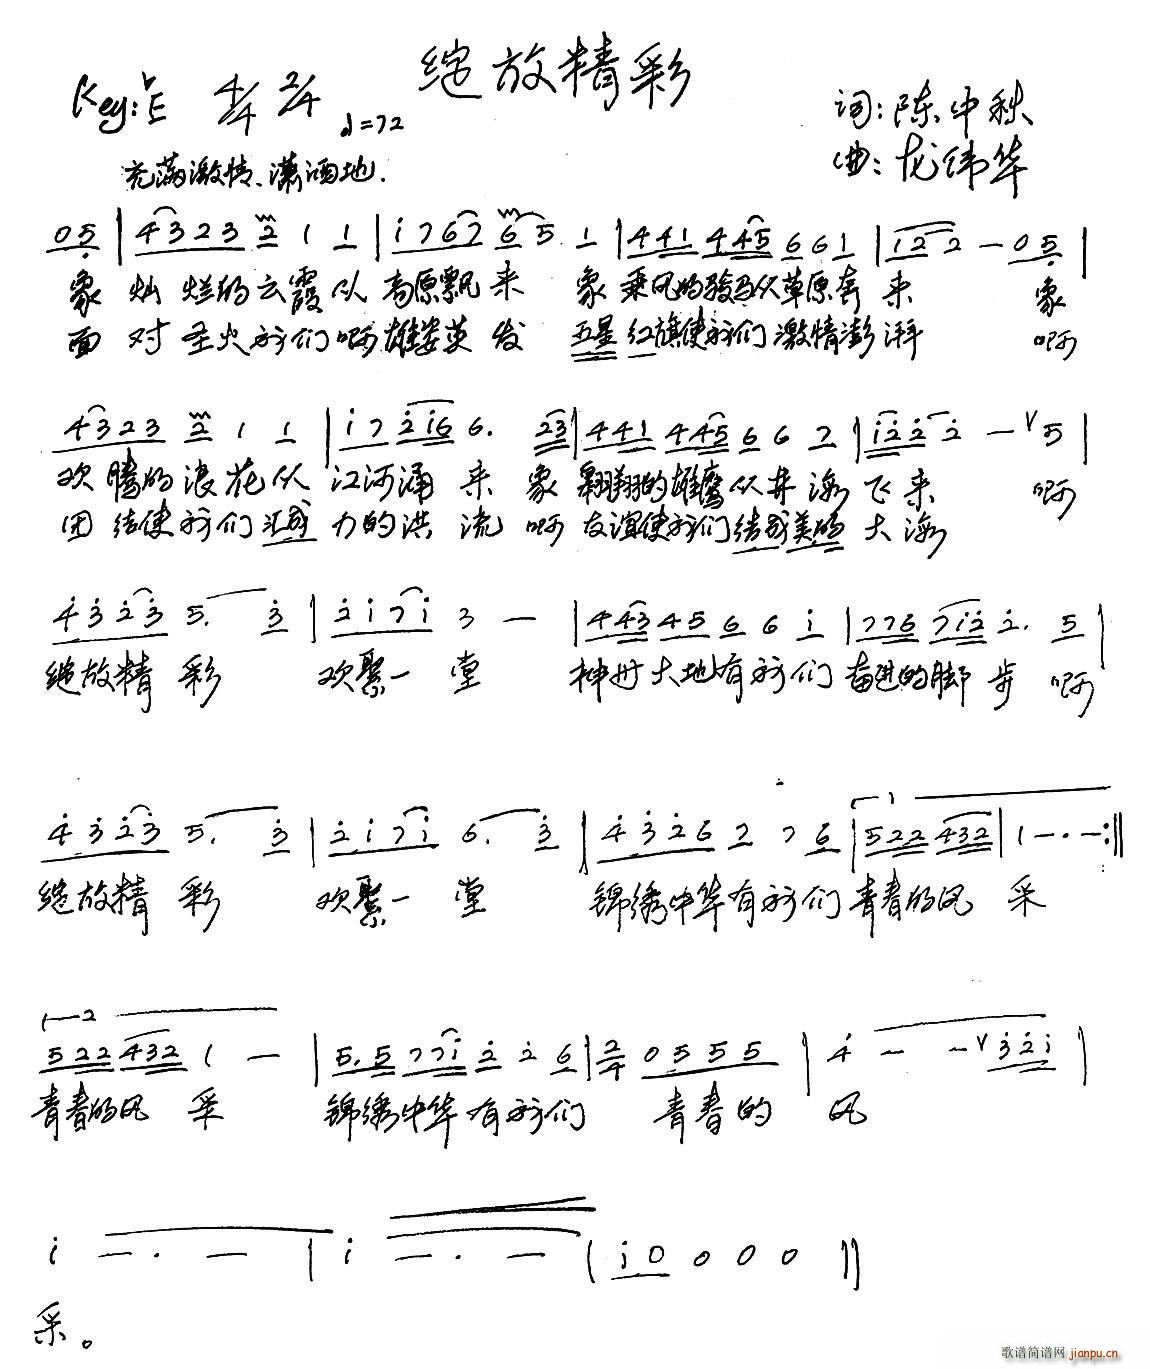 绽放精彩
Key:♭E 4/4 2/4 ♩=72
词:陈中秋
曲:龙纬华
充满激情、潇洒地.
05|4323 2 1 1|i767 65. 1|441 445 6 61|i22 - 05|
象 灿烂的云霞从高原飘来 象乘风的骏马从草原奔来 象
面对圣火我们啊雄姿英发 五星红旗使我们激情澎湃 啊
4323 2 1 1|i7 2i6 6. 23|441 445 6 6 2|i22 2 - ∨5|
欢腾的浪花从江河涌来 象翱翔的雄鹰从井海飞来 啊
团结使我们汇成力的洪流 啊友谊使我们结成美的大海
4323 5. 3|2i7i 3 -|443 45 6 6 i|776 7i2 2. 5|
绽放精彩 欢聚一堂 神州大地有我们奋进的脚步 啊
4323 5. 3|2i7i 6. 3|4326 2 7 6|522 432|1-·-:||
绽放精彩 欢聚一堂 锦绣中华有我们青春的风采
522 432 1 -|5.5 77i 2 2 6|2/4 0555|4 - -∨32i|
青春的风采 锦绣中华有我们 青春的风
i -·-|i -·-|i0 0 0 0||
采。
歌谱简谱网 jianpu.cn